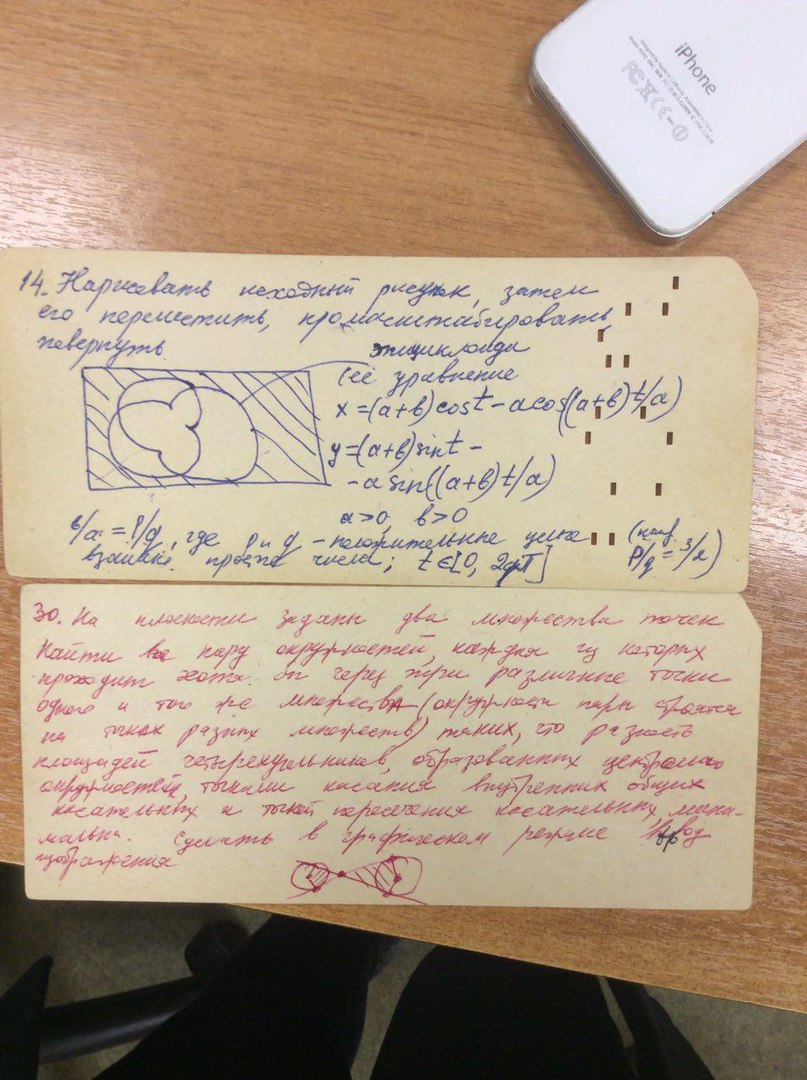 iPhone
14. Нарисовать исходный рисунок, затем
его переместить, промасштабировать,
повернуть.
эпициклоида
(её уравнение
x = (a+b)cost - a cos((a+b)t/a)
y = (a+b)sint -
- a sin((a+b)t/a)
a>0, b>0
b/a = p/q, где p и q - положительные целые (
взаимно простые числа; t ∈ [0, 2qπ] p/q = 3/
30. На плоскости заданы два множества точек
Найти пару окружностей, каждая из которых
проходит хотя бы через три различные точки
одного и того же множества (окружности пары строятся
на точках разных множеств) таких, что разность
площадей четырехугольников, образованных центрами
окружностей, точками касания внутренних общих
касательных и точкой пересечения касательных, мини-
мальна. Сделать в графическом режиме вывод
изображения